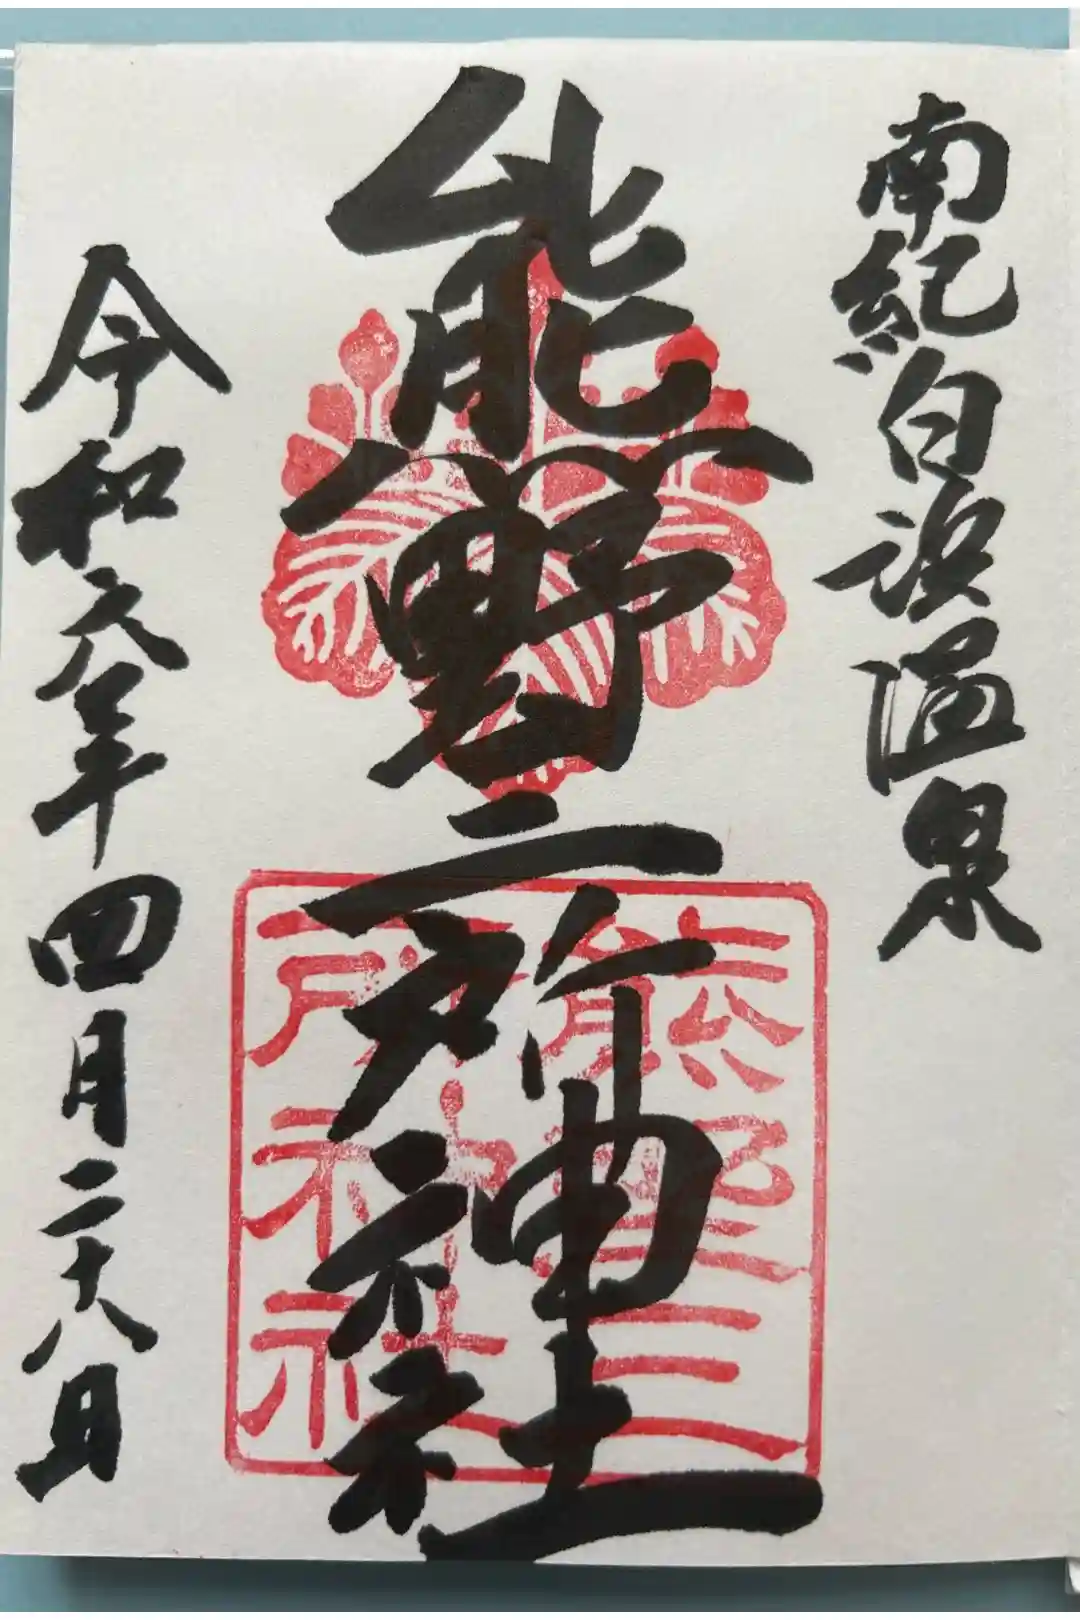 南紀白浜温泉
熊野三所神社
熊野三
所神社
令和六年四月二十八日